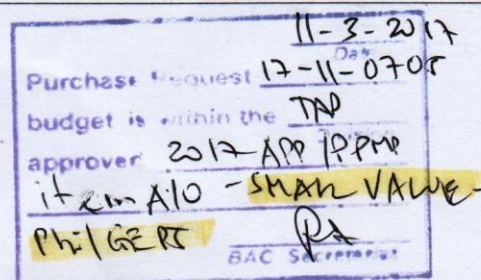 11-3-2017
Date
Purchase Request 17-11-0708
budget is within the TAD
Division
approved 2017-APP/PPMP
item A10 - SMALL VALUE-
PhilGEPS
BAC Secretariat